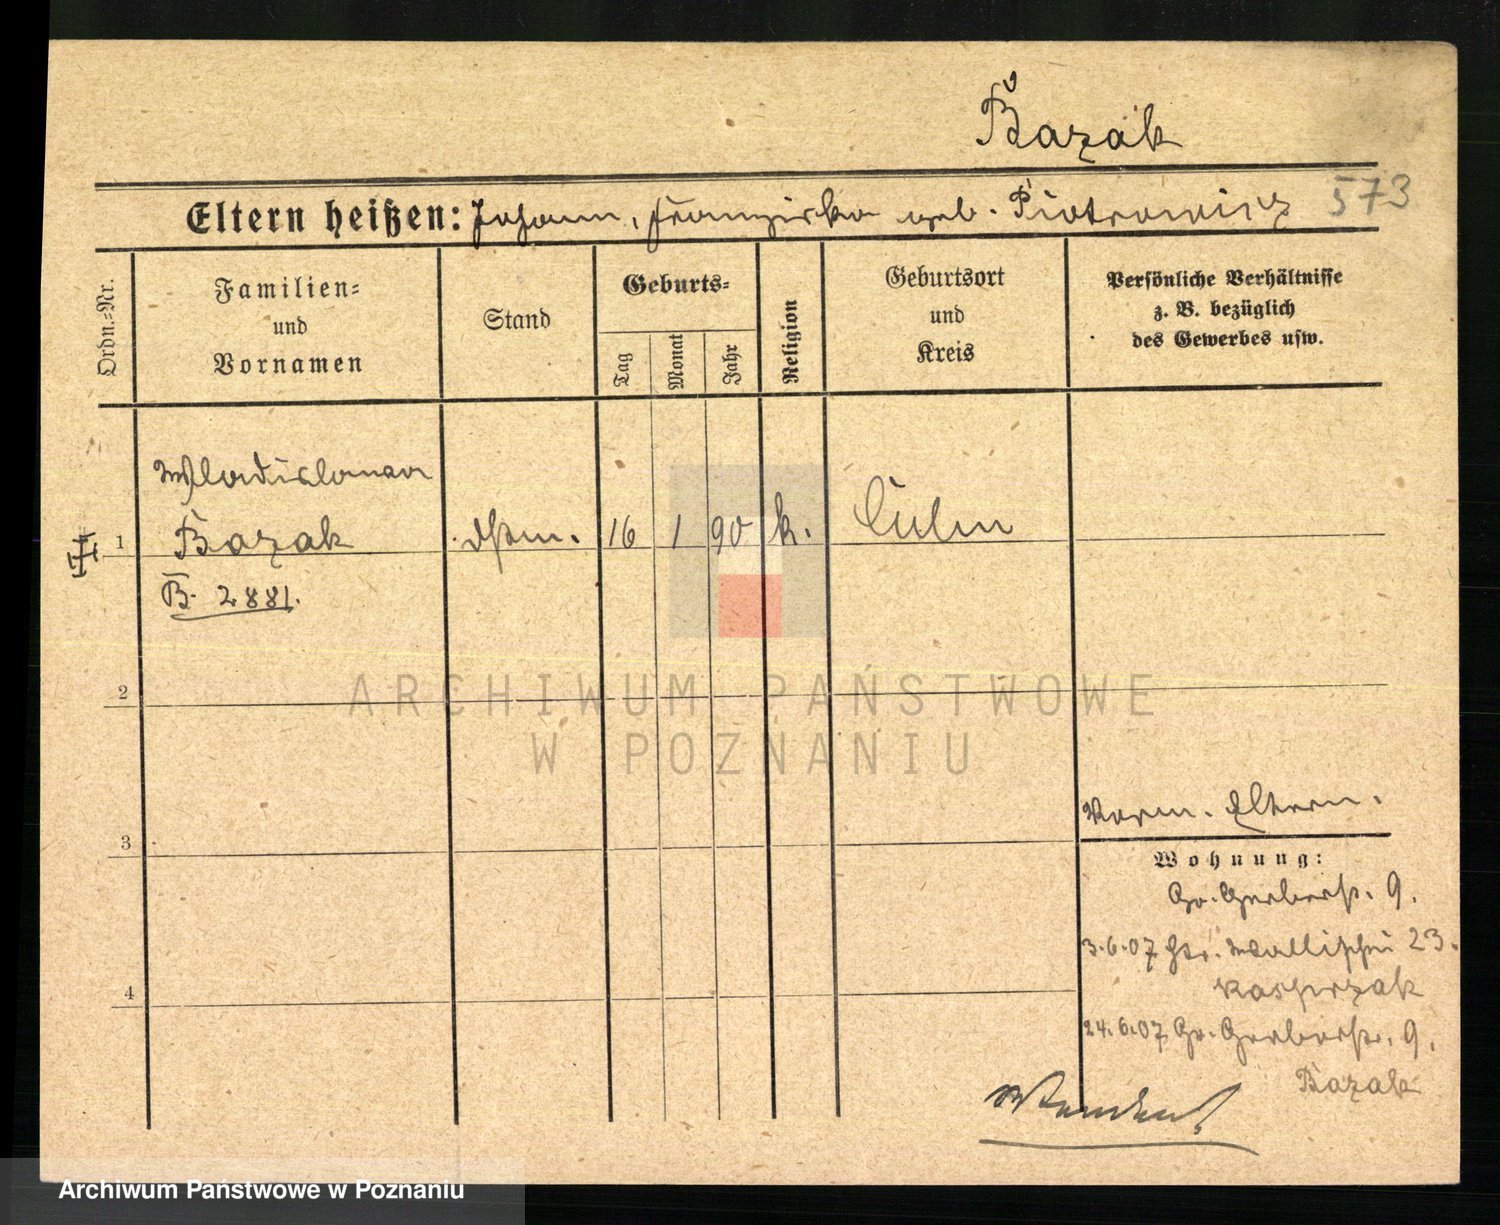 Bazak
573
Eltern heißen: Johann, Franziska geb. Piotrowicz
Ordn.-Nr.
Familien-
und
Vornamen
Stand
Geburts-
Tag
Monat
Jahr
Religion
Geburtsort
und
Kreis
Persönliche Verhältnisse
z. B. bezüglich
des Gewerbes usw.
Wladislawa
1 Bazak 16 1 90 k. Culm
B. 2881.
2
3
4
Eltern.
Wohnung:
Gr. Gerberstr. 9.
3.6.07 Wallischei 23.
Kasprzak
24.6.07 Gr. Gerberstr. 9.
Bazak
ARCHIWUM PAŃSTWOWE
W POZNANIU
Archiwum Państwowe w Poznaniu